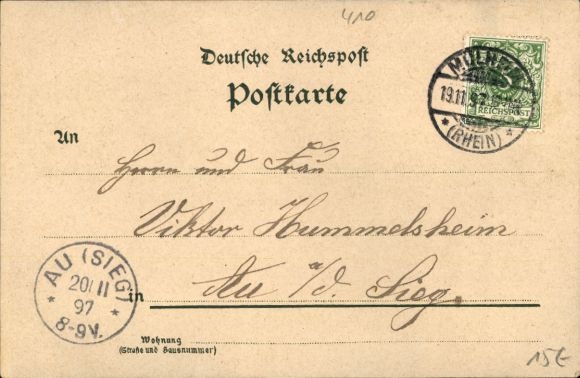 410
Deutsche Reichspost
Postkarte
REICHSPOST
19.11.97
* (RHEIN) *
An
Herrn und Frau
Viktor Hummelsheim
in Au a/d. Sieg.
AU (SIEG)
20/11
97
8-9V.
Wohnung
(Straße und Hausnummer)
15€